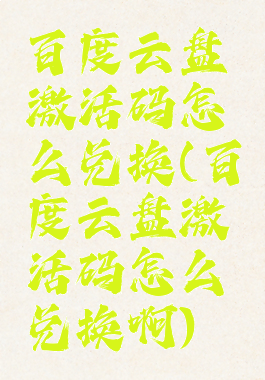 百度云盘
激活码怎
么兑换(百
度云盘激
活码怎么
兑换啊)